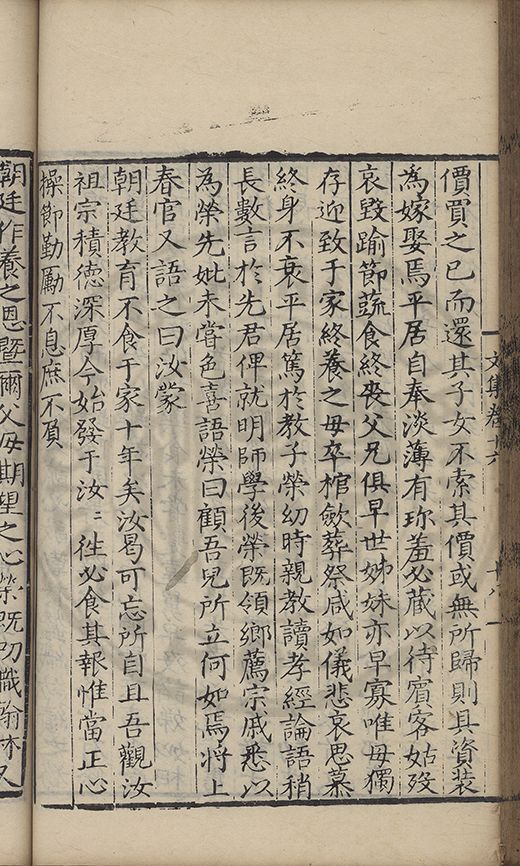 文集卷十六
十八
價買之已而還其子女不索其價或無所歸則具資裝
為嫁娶焉平居自奉淡薄有珎羞必蔵以待賔客姑歿
哀毀踰節蔬食終喪父兄俱早世姊妹亦早寡唯母獨
存迎致于家終養之母卒棺斂葬祭咸如儀悲哀思慕
終身不衰平居篤於教子榮幼時親教讀孝經論語稍
長數言於先君俾就明師學後榮既領鄉薦宗戚悉以
為榮先妣未甞色喜語榮曰顧吾兒所立何如焉將上
春官又語之曰汝蒙
朝廷教育不食于家十年矣汝曷可忘所自且吾觀汝
祖宗積德深厚今始發于汝〻徃必食其報惟當正心
操節勤勵不息庶不負
朝廷作養之恩曁爾父母期望之心榮既叨職翰林又